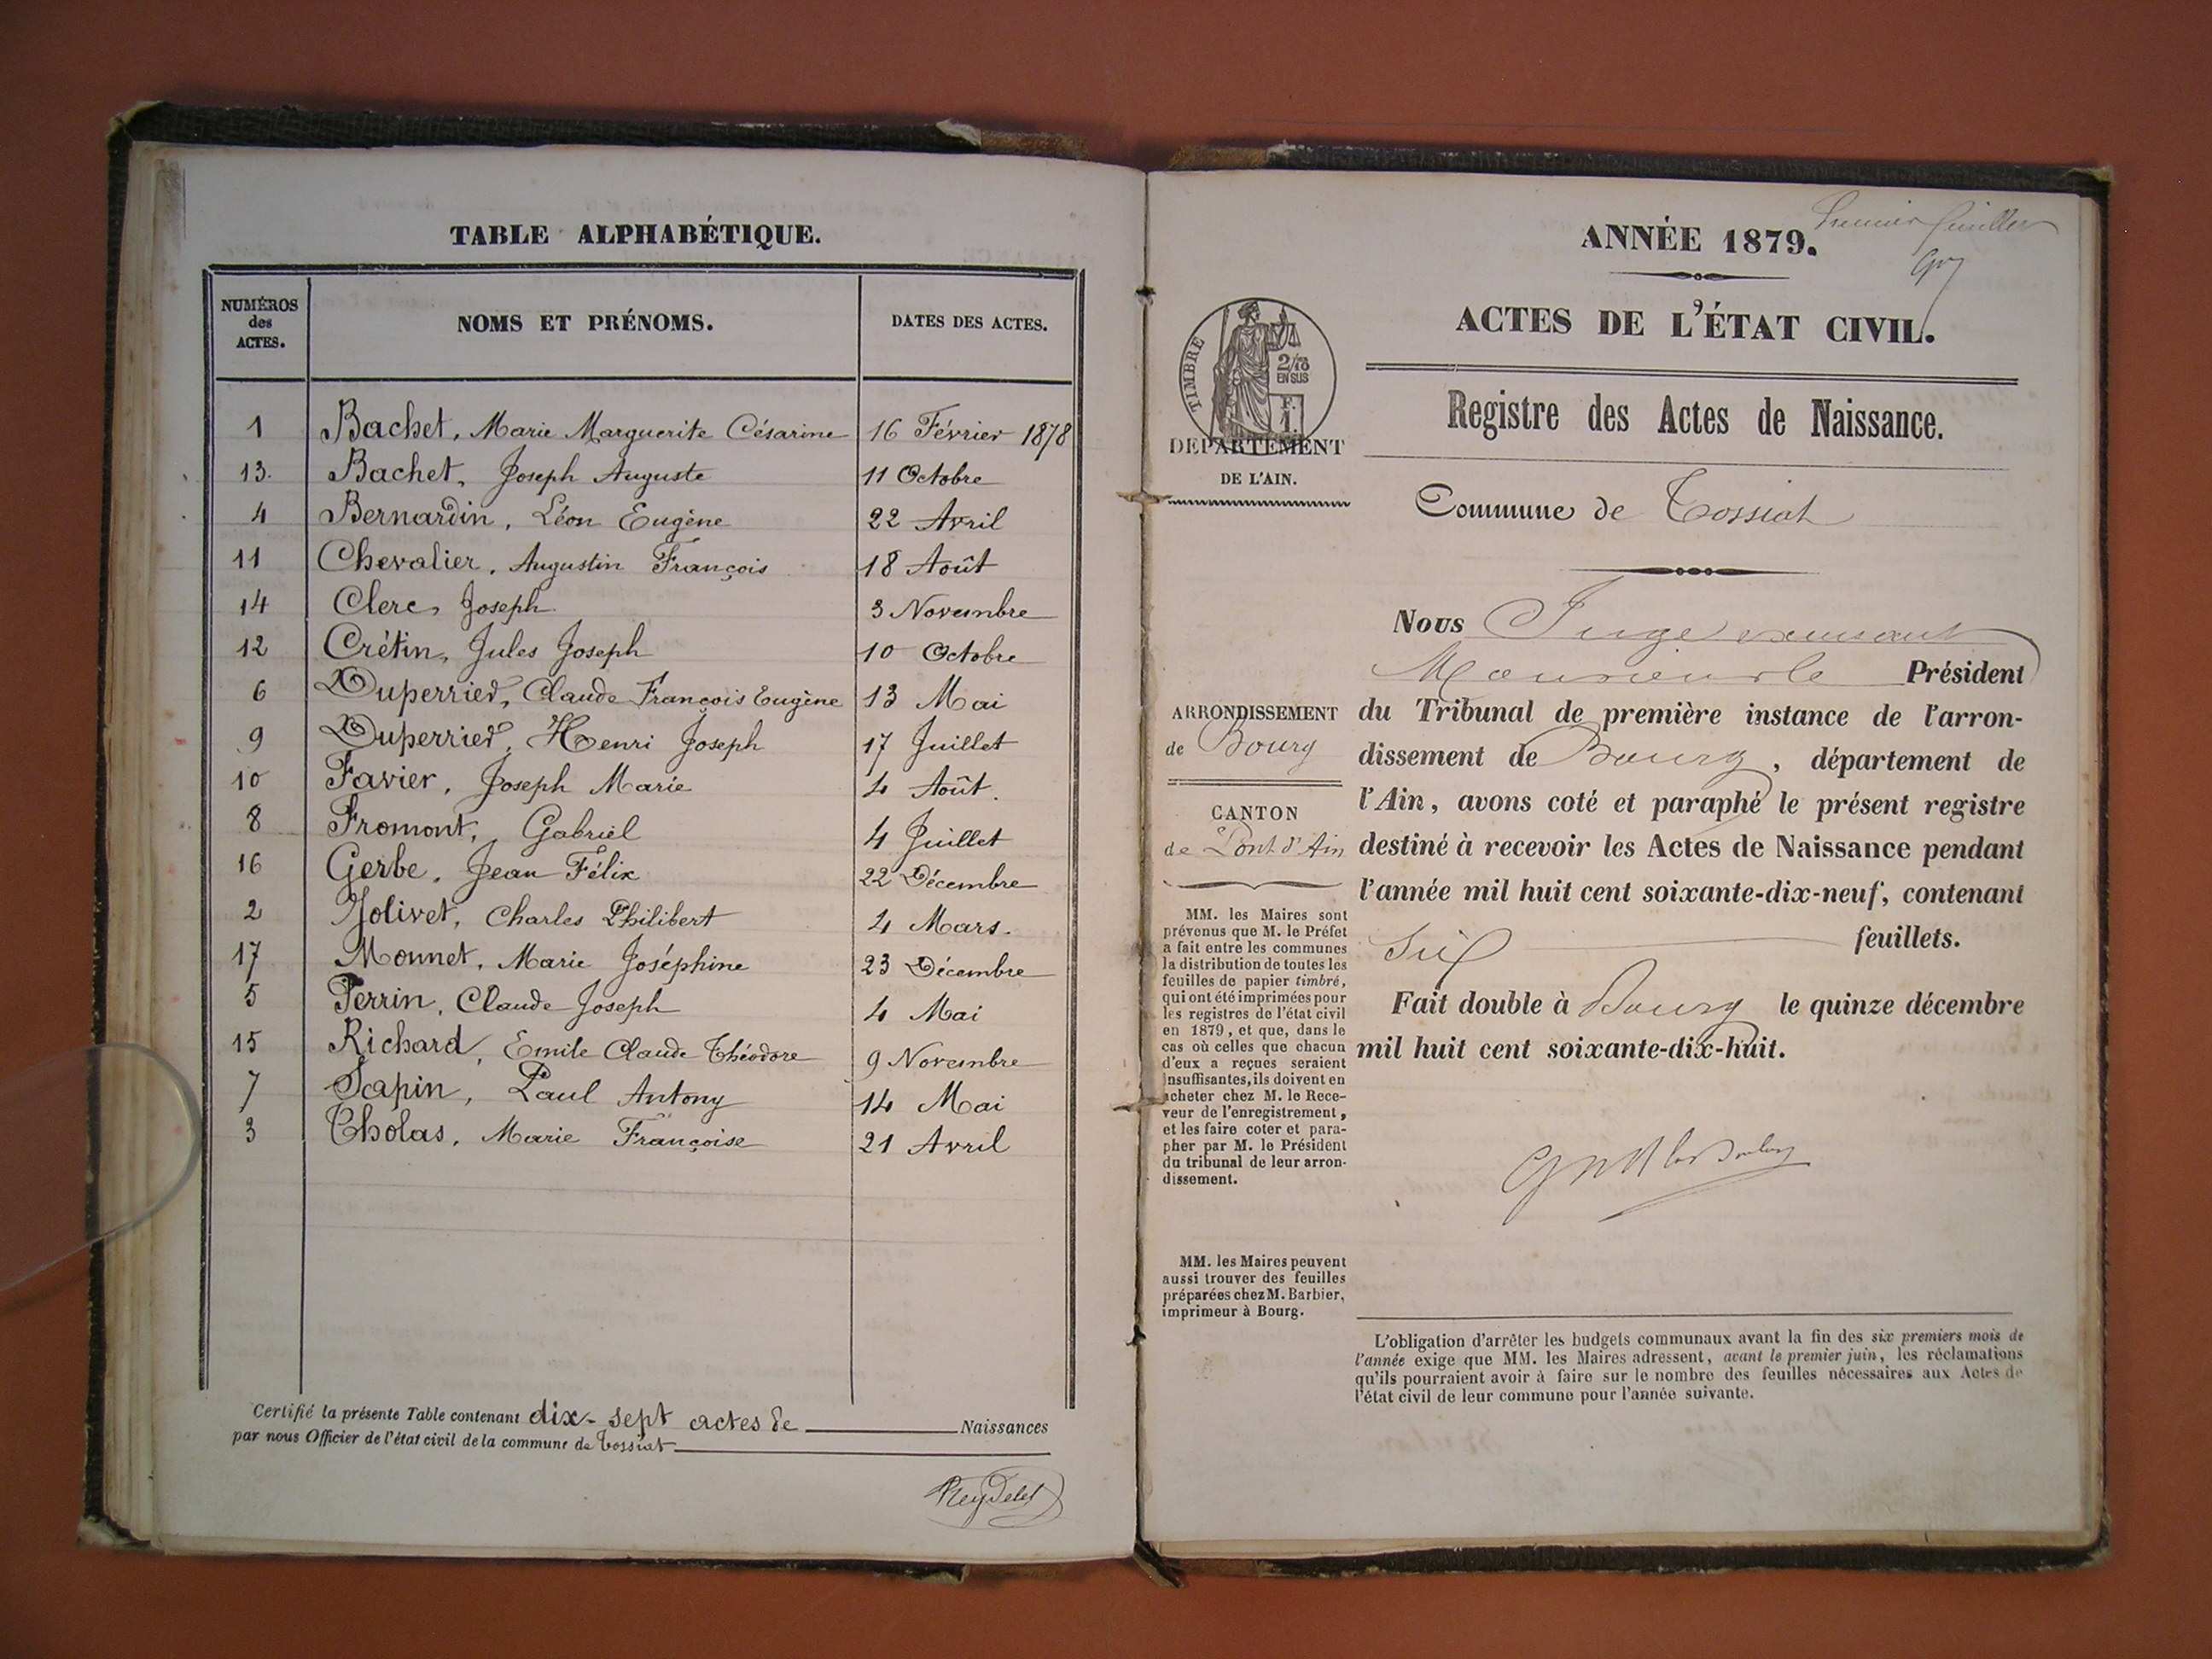 TABLE ALPHABÉTIQUE.
NUMÉROS des ACTES. NOMS ET PRÉNOMS. DATES DES ACTES.
1 Bachet, Marie Marguerite Césarine 16 Février 1878
13. Bachet, Joseph Auguste 11 Octobre
4 Bernardin, Léon Eugène 22 Avril
11 Chevalier, Augustin François 18 Août
14 Clerc, Joseph 3 Novembre
12 Crétin, Jules Joseph 10 Octobre
6 Duperrier, Claude François Eugène 13 Mai
9 Duperrier, Henri Joseph 17 Juillet
10 Favier, Joseph Marie 4 Août.
8 Fromont, Gabriel 4 Juillet
16 Gerbe, Jean Félix 22 Décembre
2 Jolivet, Charles Philibert 4 Mars.
17 Monnet, Marie Joséphine 23 Décembre
5 Perrin, Claude Joseph 4 Mai
15 Richard, Emile Claude Théodore 9 Novembre
7 Sapin, Paul Antony 14 Mai
3 Cholas, Marie Françoise 21 Avril
Certifié la présente Table contenant dix-sept actes de Naissances
par nous Officier de l'état civil de la commune de Tossiat
Reydelet
Premier feuillet
ANNÉE 1879.
ACTES DE L'ÉTAT CIVIL.
TIMBRE
2/10
EN SUS
F.
1
DEPARTEMENT
DE L'AIN.
Registre des Actes de Naissance.
Commune de Tossiat
ARRONDISSEMENT
de Bourg
CANTON
de Pont d'Ain
MM. les Maires sont
prévenus que M. le Préfet
a fait entre les communes
la distribution de toutes les
feuilles de papier timbré,
qui ont été imprimées pour
les registres de l'état civil
en 1879, et que, dans le
cas où celles que chacun
d'eux a reçues seraient
insuffisantes, ils doivent en
acheter chez M. le Rece-
veur de l'enregistrement,
et les faire coter et para-
pher par M. le Président
du tribunal de leur arron-
dissement.
MM. les Maires peuvent
aussi trouver des feuilles
préparées chez M. Barbier,
imprimeur à Bourg.
Nous Juge
Monsieur le Président
du Tribunal de première instance de l'arron-
dissement de Bourg, département de
l'Ain, avons coté et paraphé le présent registre
destiné à recevoir les Actes de Naissance pendant
l'année mil huit cent soixante-dix-neuf, contenant
Six feuillets.
Fait double à Bourg le quinze décembre
mil huit cent soixante-dix-huit.
L'obligation d'arrêter les budgets communaux avant la fin des six premiers mois de
l'année exige que MM. les Maires adressent, avant le premier juin, les réclamations
qu'ils pourraient avoir à faire sur le nombre des feuilles nécessaires aux Actes de
l'état civil de leur commune pour l'année suivante.